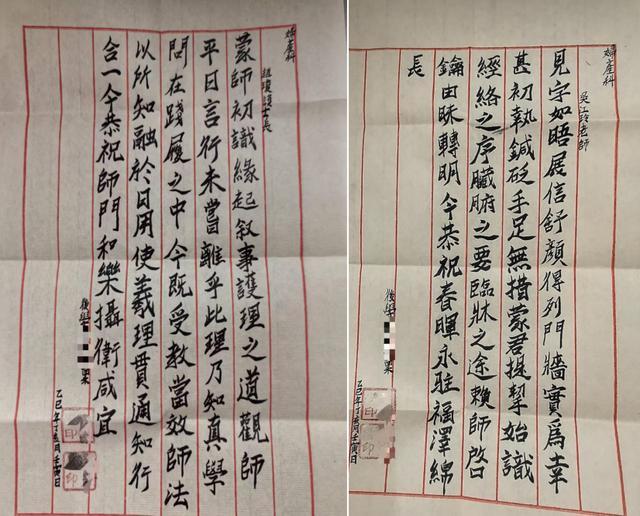 婦產科
護士長
蒙師初識緣起敘事護理之道觀師
平日言行未嘗離乎此理乃知真學
問在踐履之中今既受教當效師法
以所知融於日用使義理貫通知行
合一今恭祝師門和樂攝衛咸宜
後學
乙巳年丁亥月壬寅日
印
印
婦產科
吳江玲老師
見字如晤展信舒顏得列門牆實爲幸
甚初執鍼砭手足無措蒙君提挈始識
經絡之序臟腑之要臨牀之途賴師啓
鑰由昧轉明今恭祝春暉永駐福澤綿
長
後學
乙巳年丁亥月壬寅日
印
印